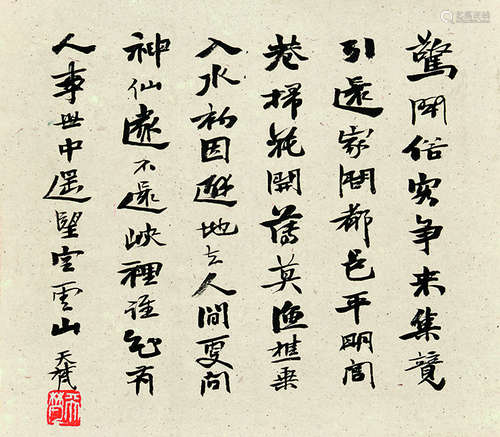 驚聞俗客爭来集競
引還家問都邑平明閭
巷掃花開薄莫漁樵乘
入水初因避地去人間更問
神仙遂不還峽裡誰知有
人事世中遥望空雲山